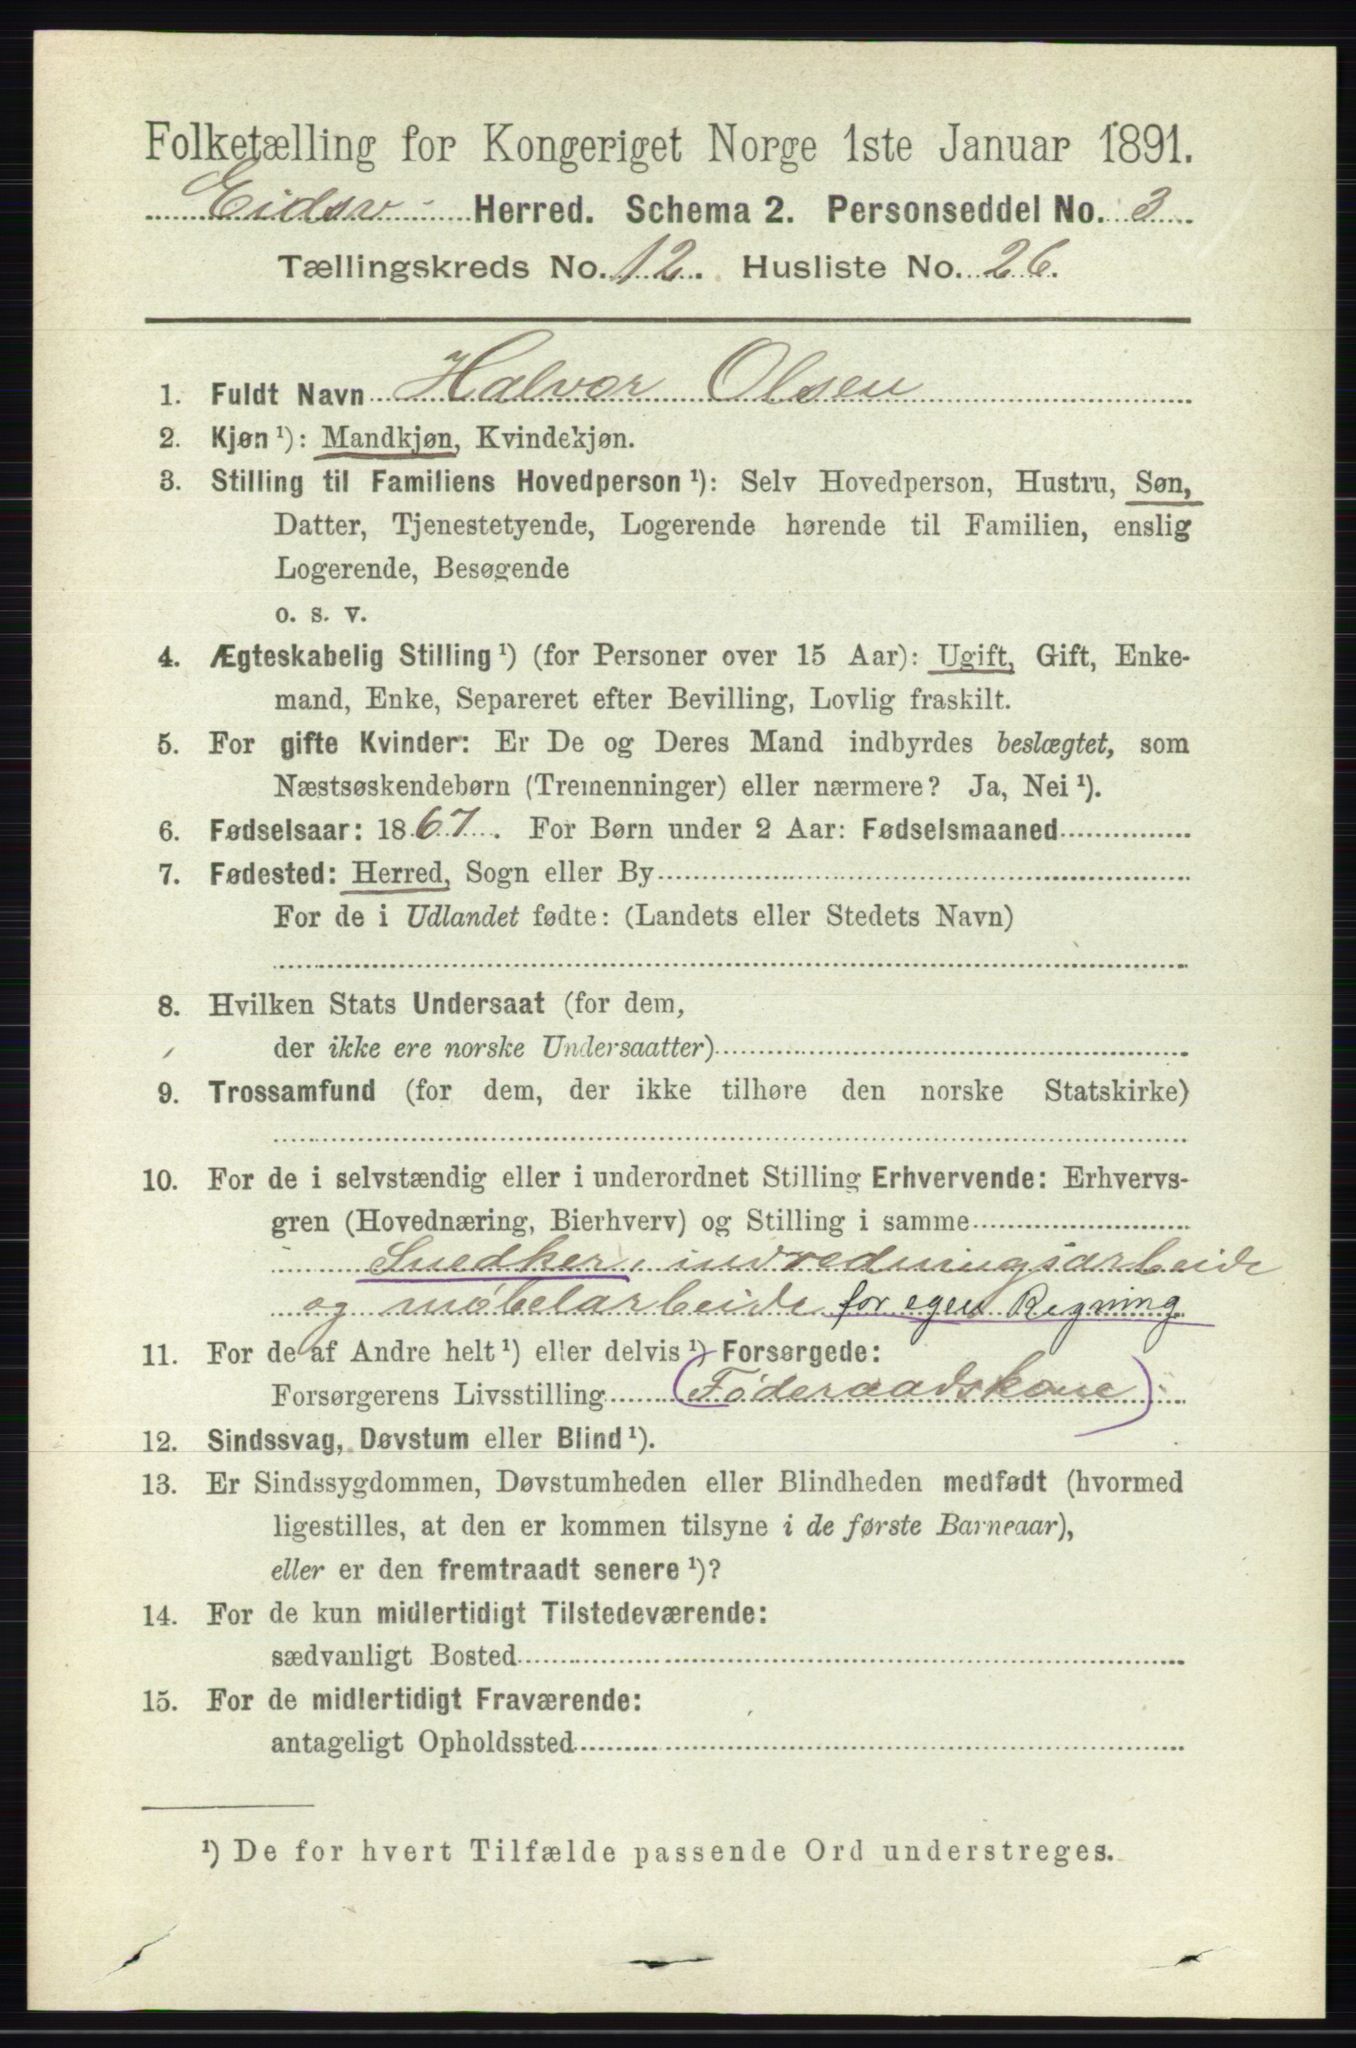 Folketælling for Kongeriget Norge 1ste Januar 1891.
Eidsv- Herred. Schema 2. Personseddel No. 3
Tællingskreds No. 12. Husliste No. 26.
1. Fuldt Navn Halvor Olsen
2. Kjøn ¹): Mandkjøn, Kvindekjøn.
3. Stilling til Familiens Hovedperson ¹): Selv Hovedperson, Hustru, Søn,
Datter, Tjenestetyende, Logerende hørende til Familien, enslig
Logerende, Besøgende
o. s. v.
4. Ægteskabelig Stilling ¹) (for Personer over 15 Aar): Ugift, Gift, Enke-
mand, Enke, Separeret efter Bevilling, Lovlig fraskilt.
5. For gifte Kvinder: Er De og Deres Mand indbyrdes beslægtet, som
Næstsøskendebørn (Tremenninger) eller nærmere? Ja, Nei ¹).
6. Fødselsaar: 1867. For Børn under 2 Aar: Fødselsmaaned
7. Fødested: Herred, Sogn eller By
For de i Udlandet fødte: (Landets eller Stedets Navn)
8. Hvilken Stats Undersaat (for dem,
der ikke ere norske Undersaatter)
9. Trossamfund (for dem, der ikke tilhøre den norske Statskirke)
10. For de i selvstændig eller i underordnet Stilling Erhvervende: Erhvervs-
gren (Hovednæring, Bierhverv) og Stilling i samme
Snedker, indredningsarbeide
og møbelarbeide for egen Regning
11. For de af Andre helt ¹) eller delvis ¹) Forsørgede:
Forsørgerens Livsstilling (Føderaadskone)
12. Sindssvag, Døvstum eller Blind ¹).
13. Er Sindssygdommen, Døvstumheden eller Blindheden medfødt (hvormed
ligestilles, at den er kommen tilsyne i de første Barneaar),
eller er den fremtraadt senere ¹)?
14. For de kun midlertidigt Tilstedeværende:
sædvanligt Bosted
15. For de midlertidigt Fraværende:
antageligt Opholdssted
¹) De for hvert Tilfælde passende Ord understreges.